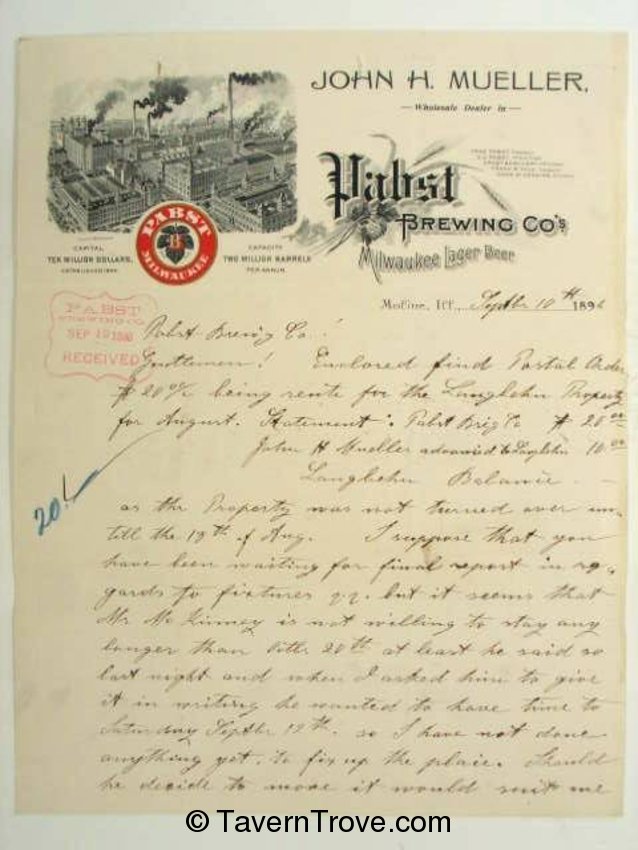 JOHN H. MUELLER,
Wholesale Dealer in
Pabst
BREWING CO'S
Milwaukee Lager Beer
CAPITAL
TEN MILLION DOLLARS.
ESTABLISHED 1844
PABST
B
MILWAUKEE
CAPACITY
TWO MILLION BARRELS
PER ANNUM.
Moline, Ill., Septbr 10th 189
PABST
BREWING CO.
SEP 19 1896
RECEIVED
Pabst Brewig Co!
Gentlemen! Enclosed find Postal Order
$ 20 00/ being rente for the Langbehn Property
for August. Statement: Pabst Brig Co $ 20 00
John H Mueller advanced to Langbehn 10.00
Langbehn Balance
20.
as the Property was not turned over un-
till the 18th of Aug. I suppose that you
have been waiting for final report in re-
gards to fixtures but it seems that
Mr Mc Kinney is not willing to stay any
longer than 20th at least he said so
last night and when I asked him to give
it in writing he wanted to have time to
Saturday Septbr 12th. so I have not done
anything yet. to fix up the place. Should
he decide to move it would suit me
© TavernTrove.com